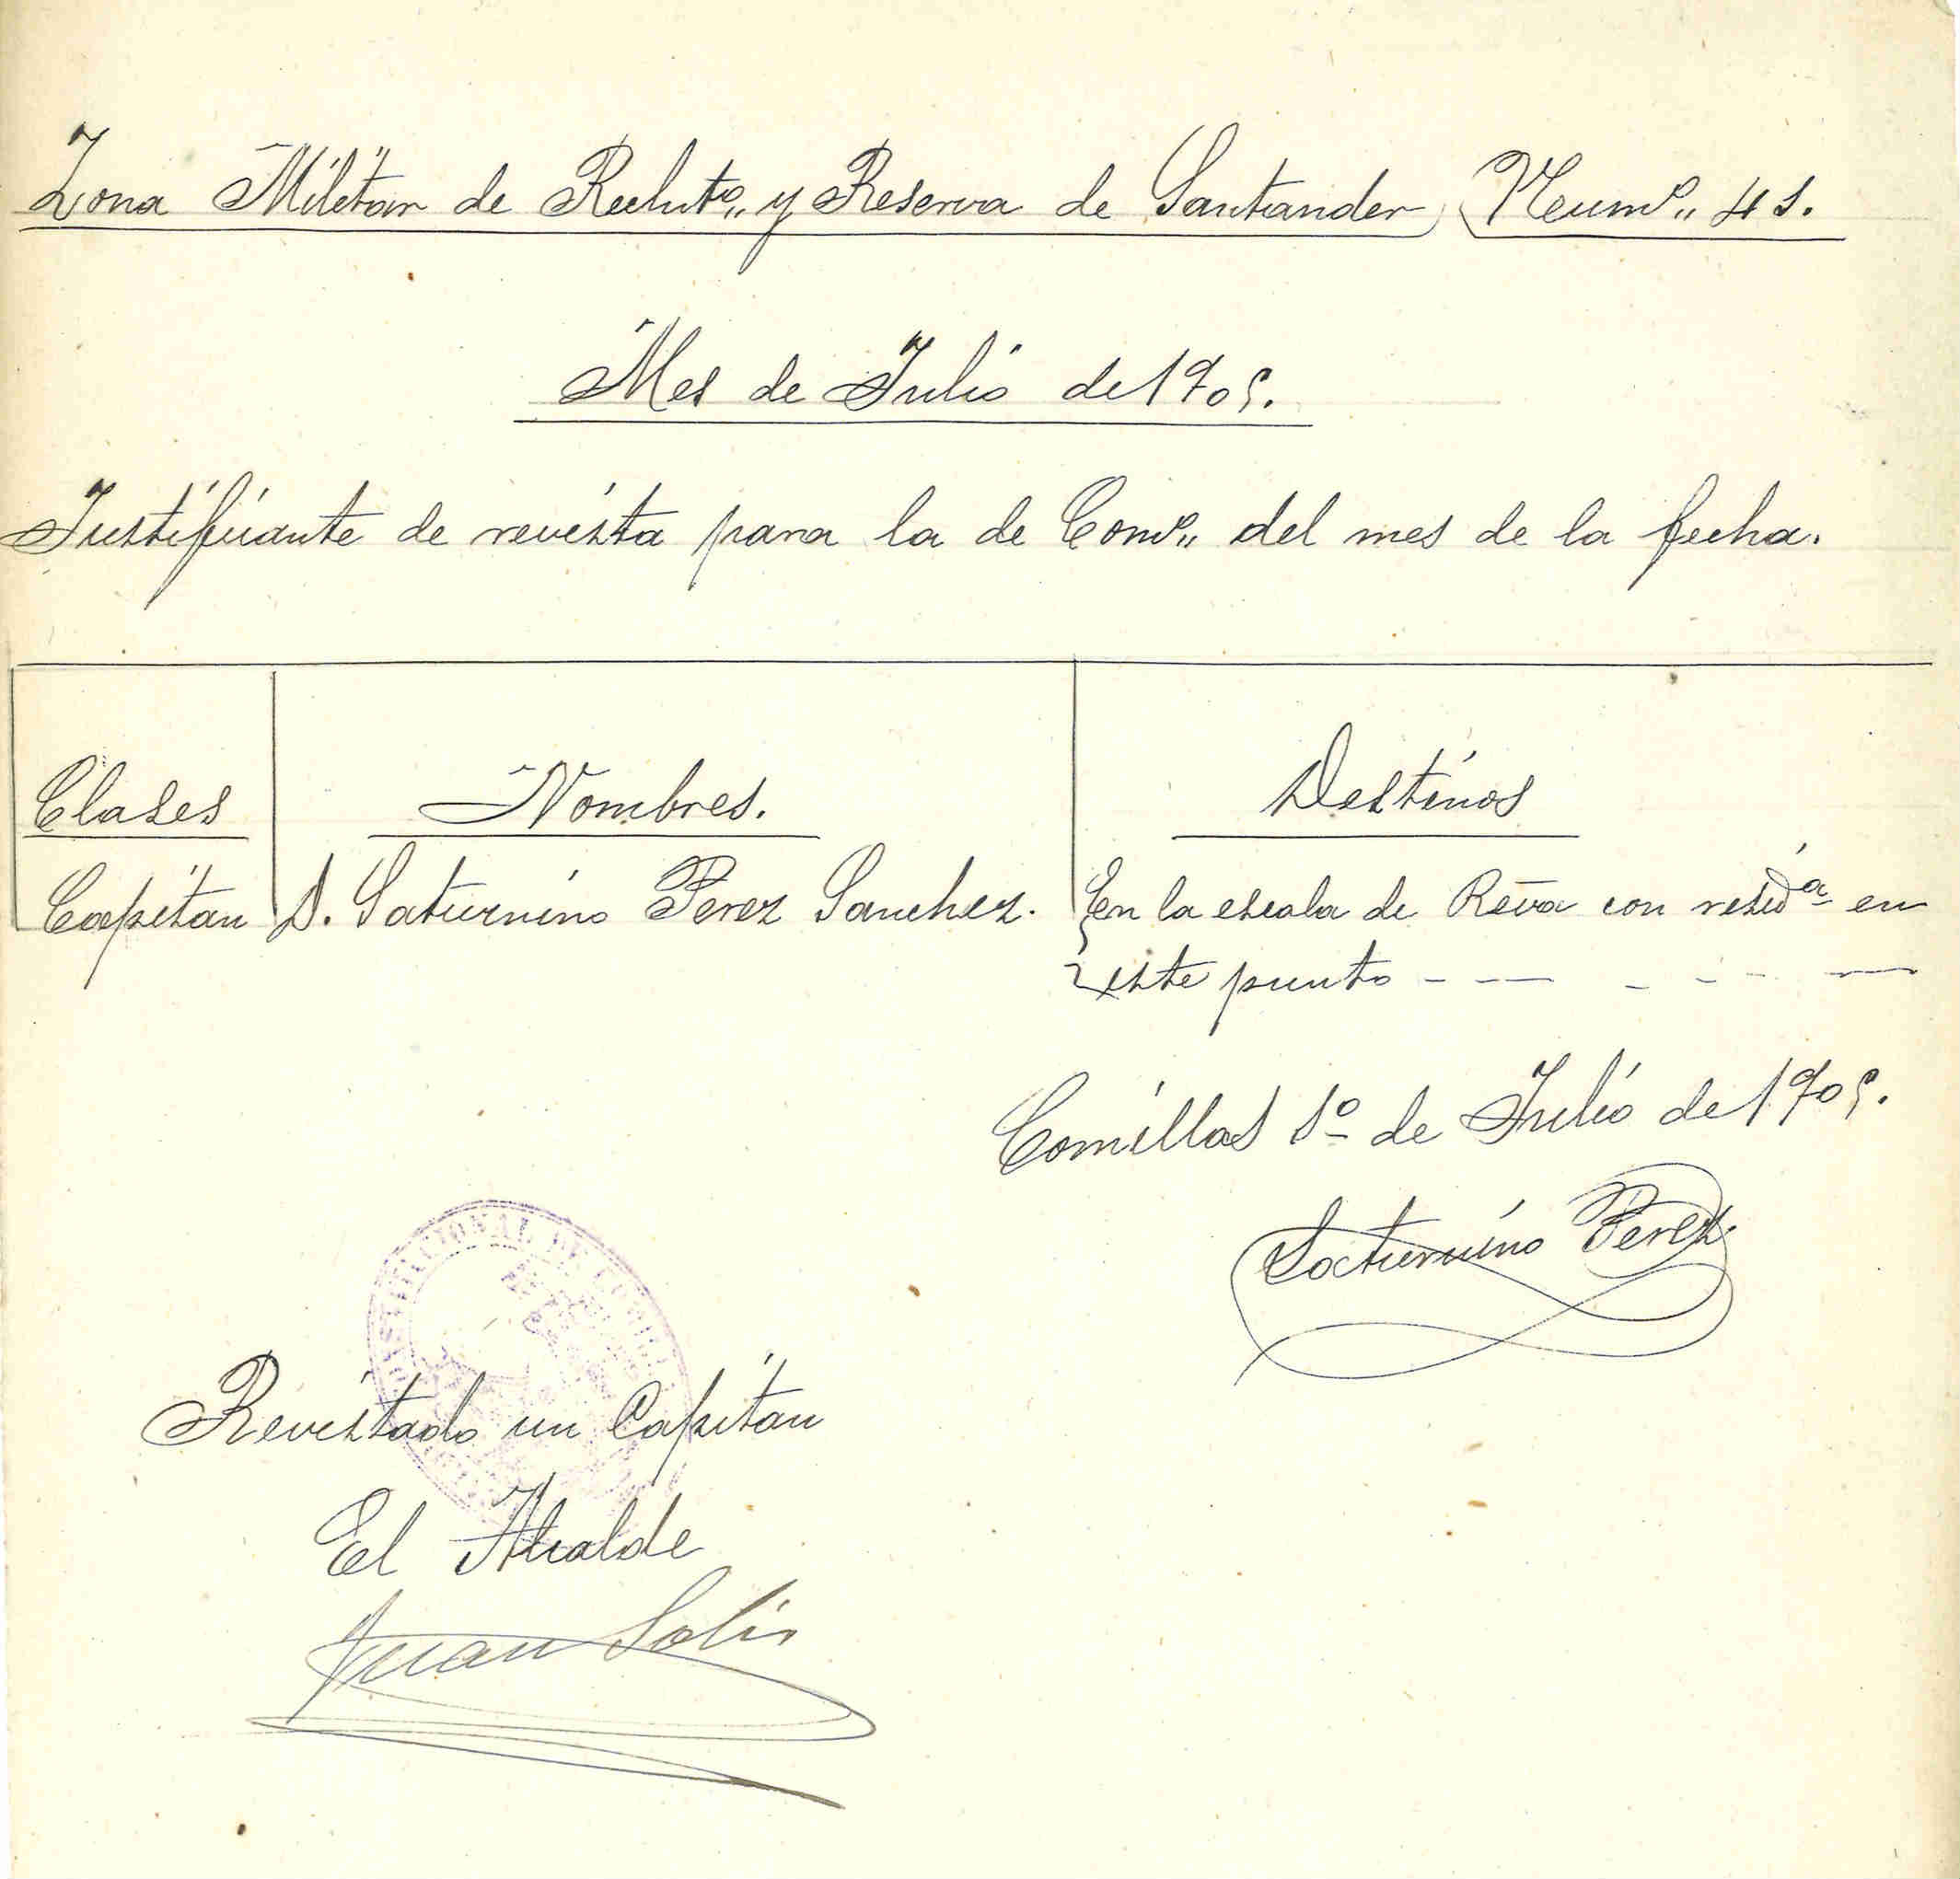 Zona Militar de Reclutº y Reserva de Santander, Numº 41.
Mes de Julio de 1905.
Justificante de revista para la de Comº del mes de la fecha.
Clases Nombres. Destinos
Capitan D. Saturnino Perez Sanchez. En la escala de Rēva con residª en
este punto
Comillas 1º de Julio de 1905.
Saturnino Perez
CONSTITUCIONAL DE
Revistado un Capitan
El Alcalde
Juan Solis